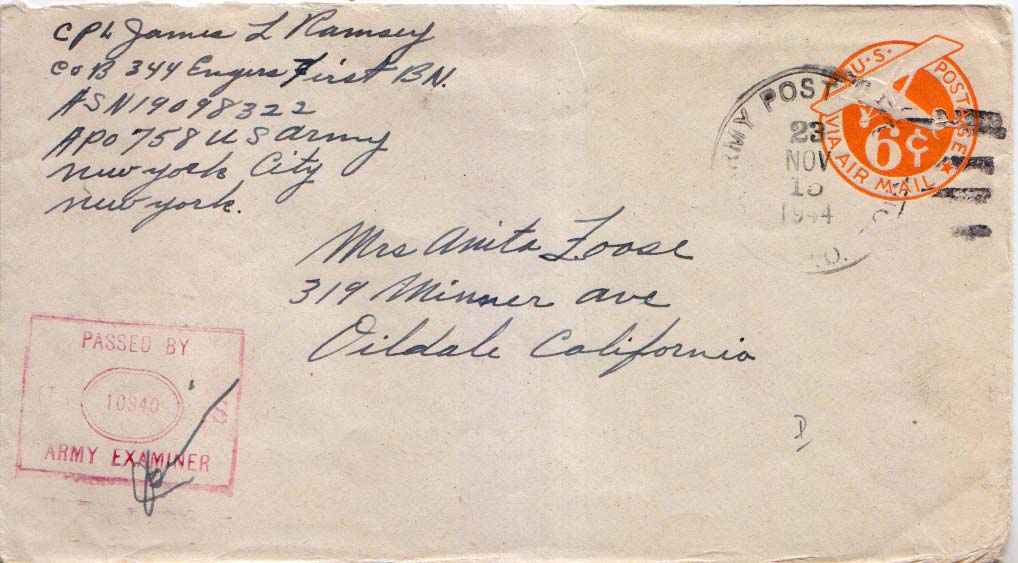 CPL James L Ramsey
Co B 344 Engers First BN.
ASN 19098322
APO 758 U S Army
New York City
New York.
U.S. POSTAGE
VIA AIR MAIL
6¢
ARMY POST
23
NOV
1944
Mrs Anita Loose
319 Minner Ave
Oildale California
PASSED BY
10840
ARMY EXAMINER